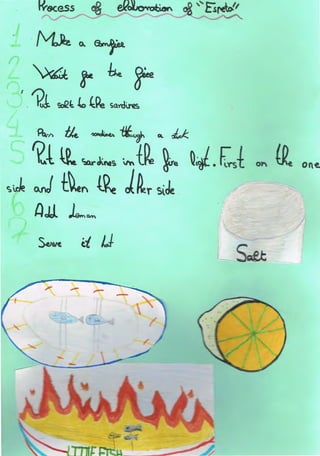 Process of elaboration of "Espeto"
1 Make a campfire
2 Wait for the fire
3 Put salt to the sardines
4 Pass the sardines through a stick
5 Put the sardines in the fire light. First on the one
side and then the other side
6 Add lemon
7 Serve it hot
Salt
LITTLE FISH